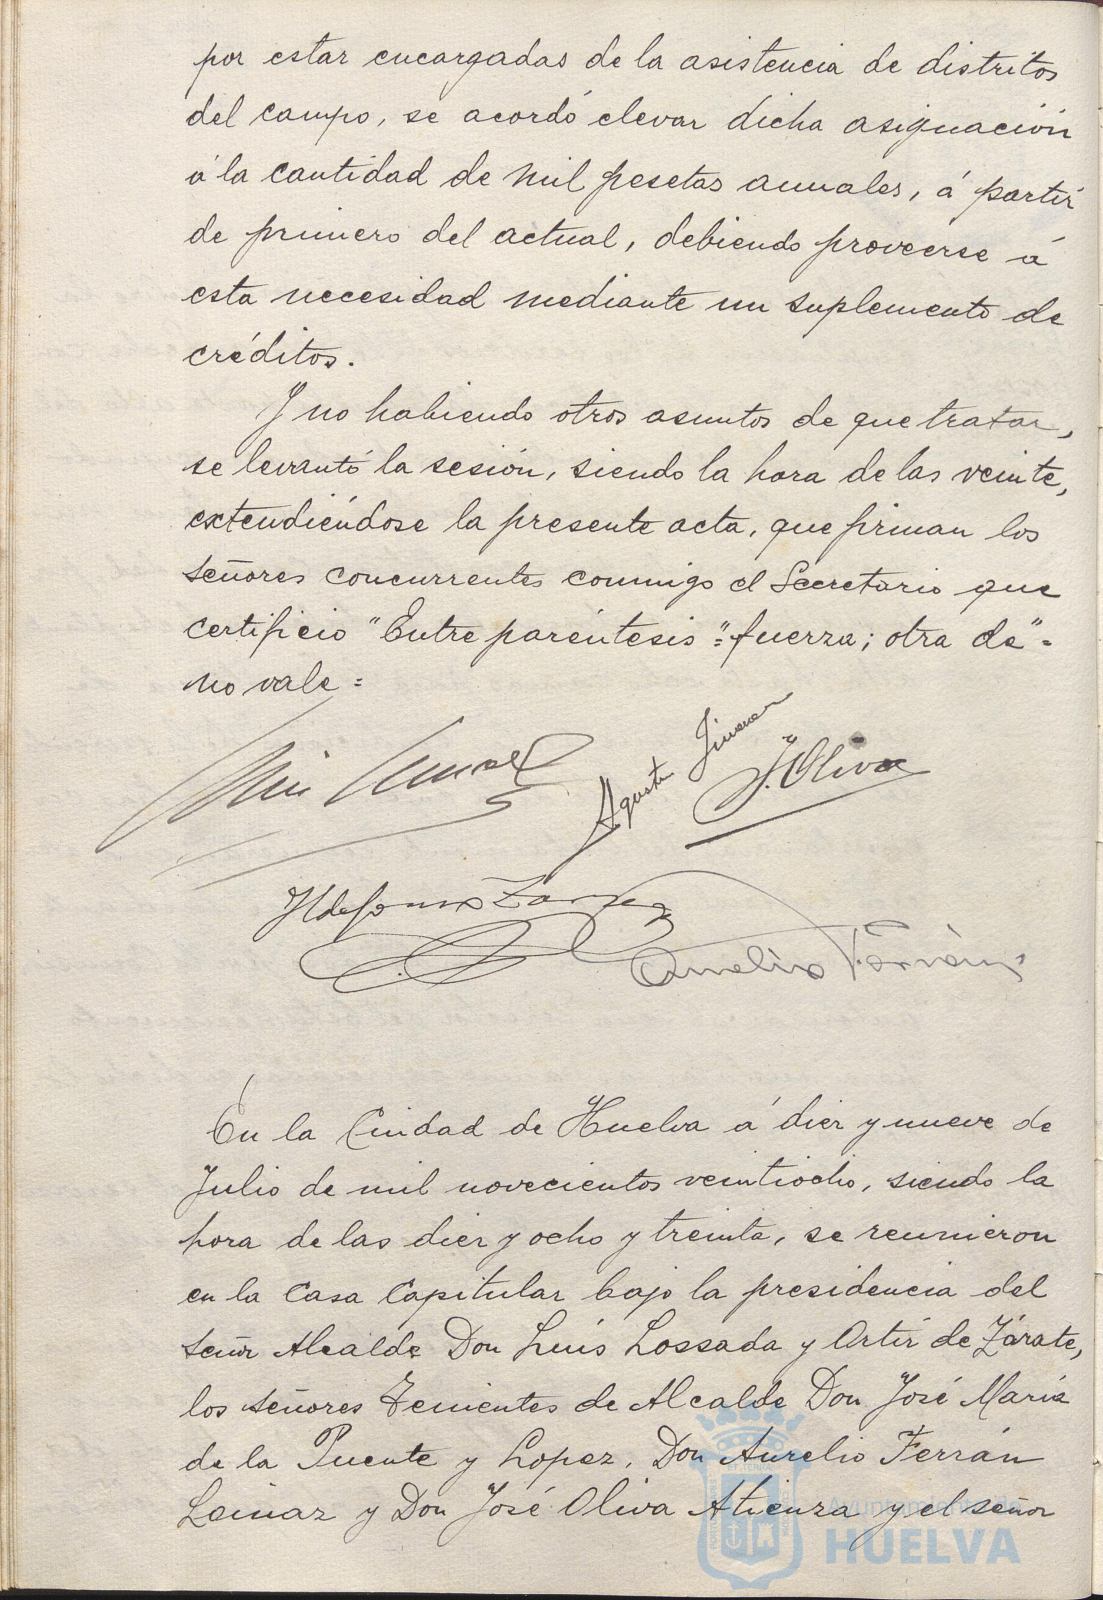 por estar encargadas de la asistencia de distritos
del campo, se acordó elevar dicha asignación
á la cantidad de mil pesetas anuales, á partir
de primero del actual, debiendo proveerse á
esta necesidad mediante un suplemento de
créditos.
Y no habiendo otros asuntos de que tratar,
se levantó la sesión, siendo la hora de las veinte,
extendiéndose la presente acta, que firman los
señores concurrentes conmigo el Secretario que
certificio "Entre paréntesis "=fuerza; otra de"=
no vale=
Agustín Jimenez
J. Oliva
Ildefonso
Aurelio Ferrán
En la Ciudad de Huelva á diez y nueve de
Julio de mil novecientos veintiocho, siendo la
hora de las diez y ocho y treinta, se reunieron
en la Casa Capitular bajo la presidencia del
señor Alcalde Don Luís Lossada y Ortíz de Zárate,
los señores Tenientes de Alcalde Don José María
de la Puente y Lopez, Don Aurelio Ferrán
Loinaz y Don José Oliva Atienza y el señor
Ayuntamiento de
HUELVA